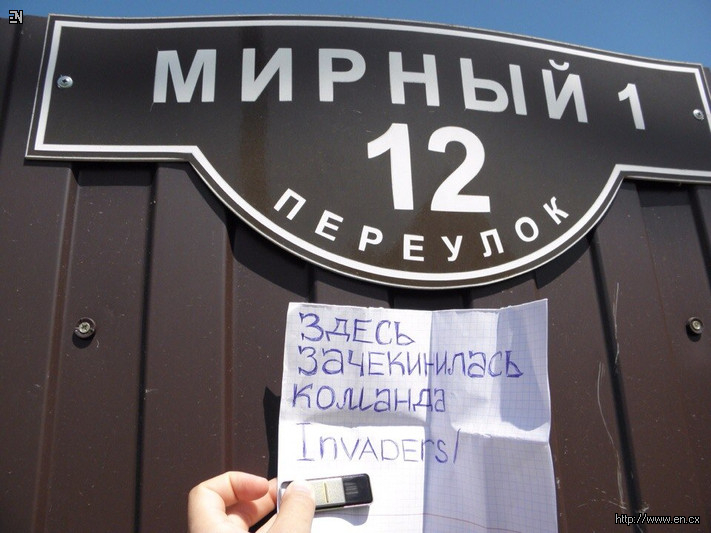 EN
МИРНЫЙ 1
12
ПЕРЕУЛОК
ЗДЕСЬ
ЗАЧЕКИНИЛАСЬ
КОМАНДА
INVADERS!
http://www.en.cx